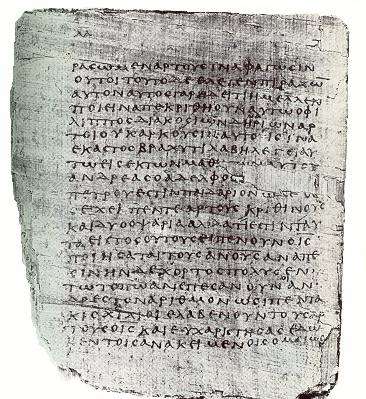 ΡΑϹΩΜΕΝΑΡΤΟΥϹΙΝΑΦΑΓΩϹΙΝ
ΟΥΤΟΙΤΟΥΤΟΔΕΕΛΕΓΕΝΠΙΡΑΖΩ
ΑΥΤΟΝΑΥΤΟϹΓΑΡΗΔΕΙΤΙΗΜΕΛΛΕΝ
ΠΟΙΕΙΝΑΠΕΚΡΙΘΗΟΥΝΑΥΤΩΟΦΙ
ΛΙΠΠΟϹΔΙΑΚΟϹΙΩΝΔΗΝΑΡΙΩΝΑΡ
ΤΟΙΟΥΚΑΡΚΟΥϹΙΝΑΥΤΟΙϹΙΝΑ
ΕΚΑϹΤΟϹΒΡΑΧΥΤΙΛΑΒΗΛΕΓΕΙΑΥ
ΤΩΕΙϹΕΚΤΩΝΜΑΘΗΤΩΝΑΥΤΟΥ
ΑΝΔΡΕΑϹΟΑΔΕΛΦΟϹ
ΠΕΤΡΟΥΕϹΤΙΝΠΑΙΔΑΡΙΟΝΩΔΕ
ΕΧΕΙΠΕΝΤΕΑΡΤΟΥϹΚΡΙΘΙΝΟΥϹ
ΚΑΙΔΥΟΟΨΑΡΙΑΑΛΛΑΤΙΕϹΤΙΝΤΑΥ
ΤΑΕΙϹΤΟϹΟΥΤΟΥϹΕΙΠΕΝΟΥΝΟΙϹ
ΠΟΙΗϹΑΤΑΙΤΟΥϹΑΝΟΥϹΑΝΑΠΕ
ϹΙΝΗΝΔΕΧΟΡΤΟϹΠΟΛΥϹΕΝ
ΤΩΤΟΠΩΑΝΕΠΕϹΑΝΟΥΝΑΝ
ΔΡΕϹΤΟΝΑΡΙΘΜΟΝΩϹΠΕΝΤΑ
ΚΙϹΧΙΛΙΟΙΕΛΑΒΕΝΟΥΝΤΟΥϹΑΡ
ΤΟΥϹΟΙϹΚΑΙΕΥΧΑΡΙϹΤΗϹΑϹΕΔΩ
ΚΕΝΤΟΙϹΑΝΑΚΕΙΜΕΝΟΙϹΟΜΟΙΩϹ